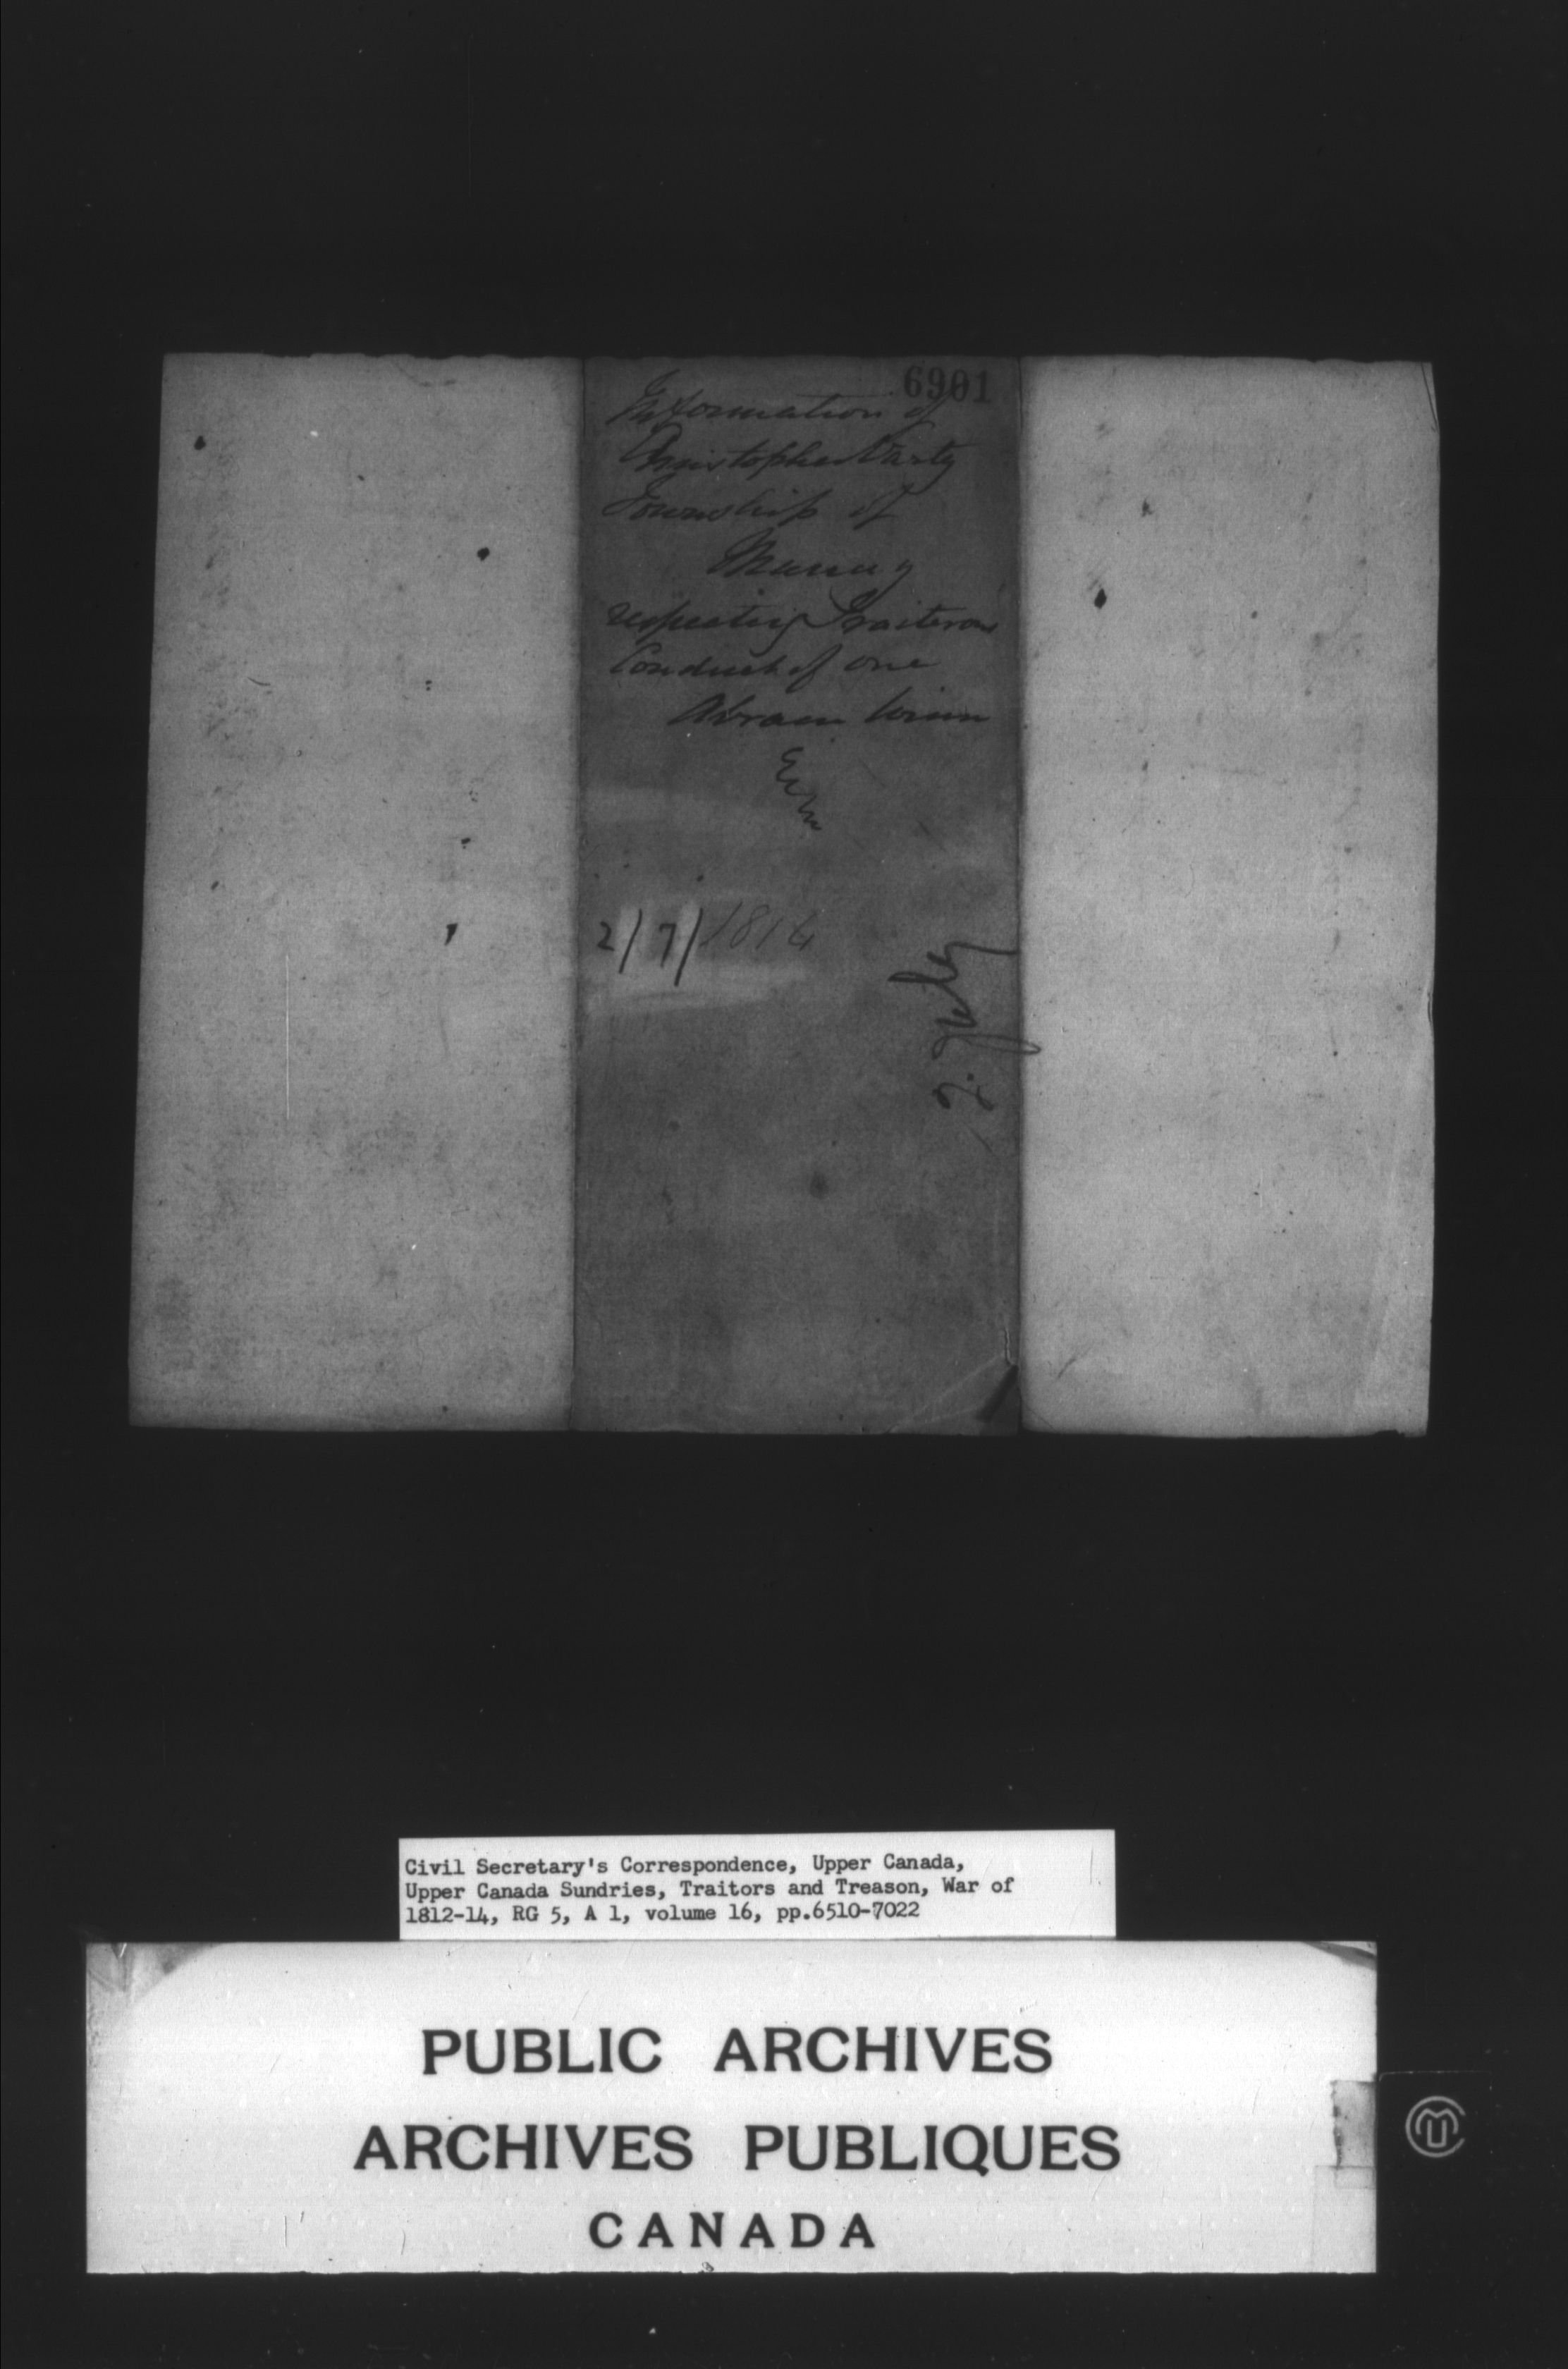 6901
Information of
Christopher Varty
Township of
Murray
respecting Traiterous
Conduct of one
Abram
2/7/1814
2. July
Civil Secretary's Correspondence, Upper Canada,
Upper Canada Sundries, Traitors and Treason, War of
1812-14, RG 5, A 1, volume 16, pp.6510-7022
PUBLIC ARCHIVES
ARCHIVES PUBLIQUES
CANADA